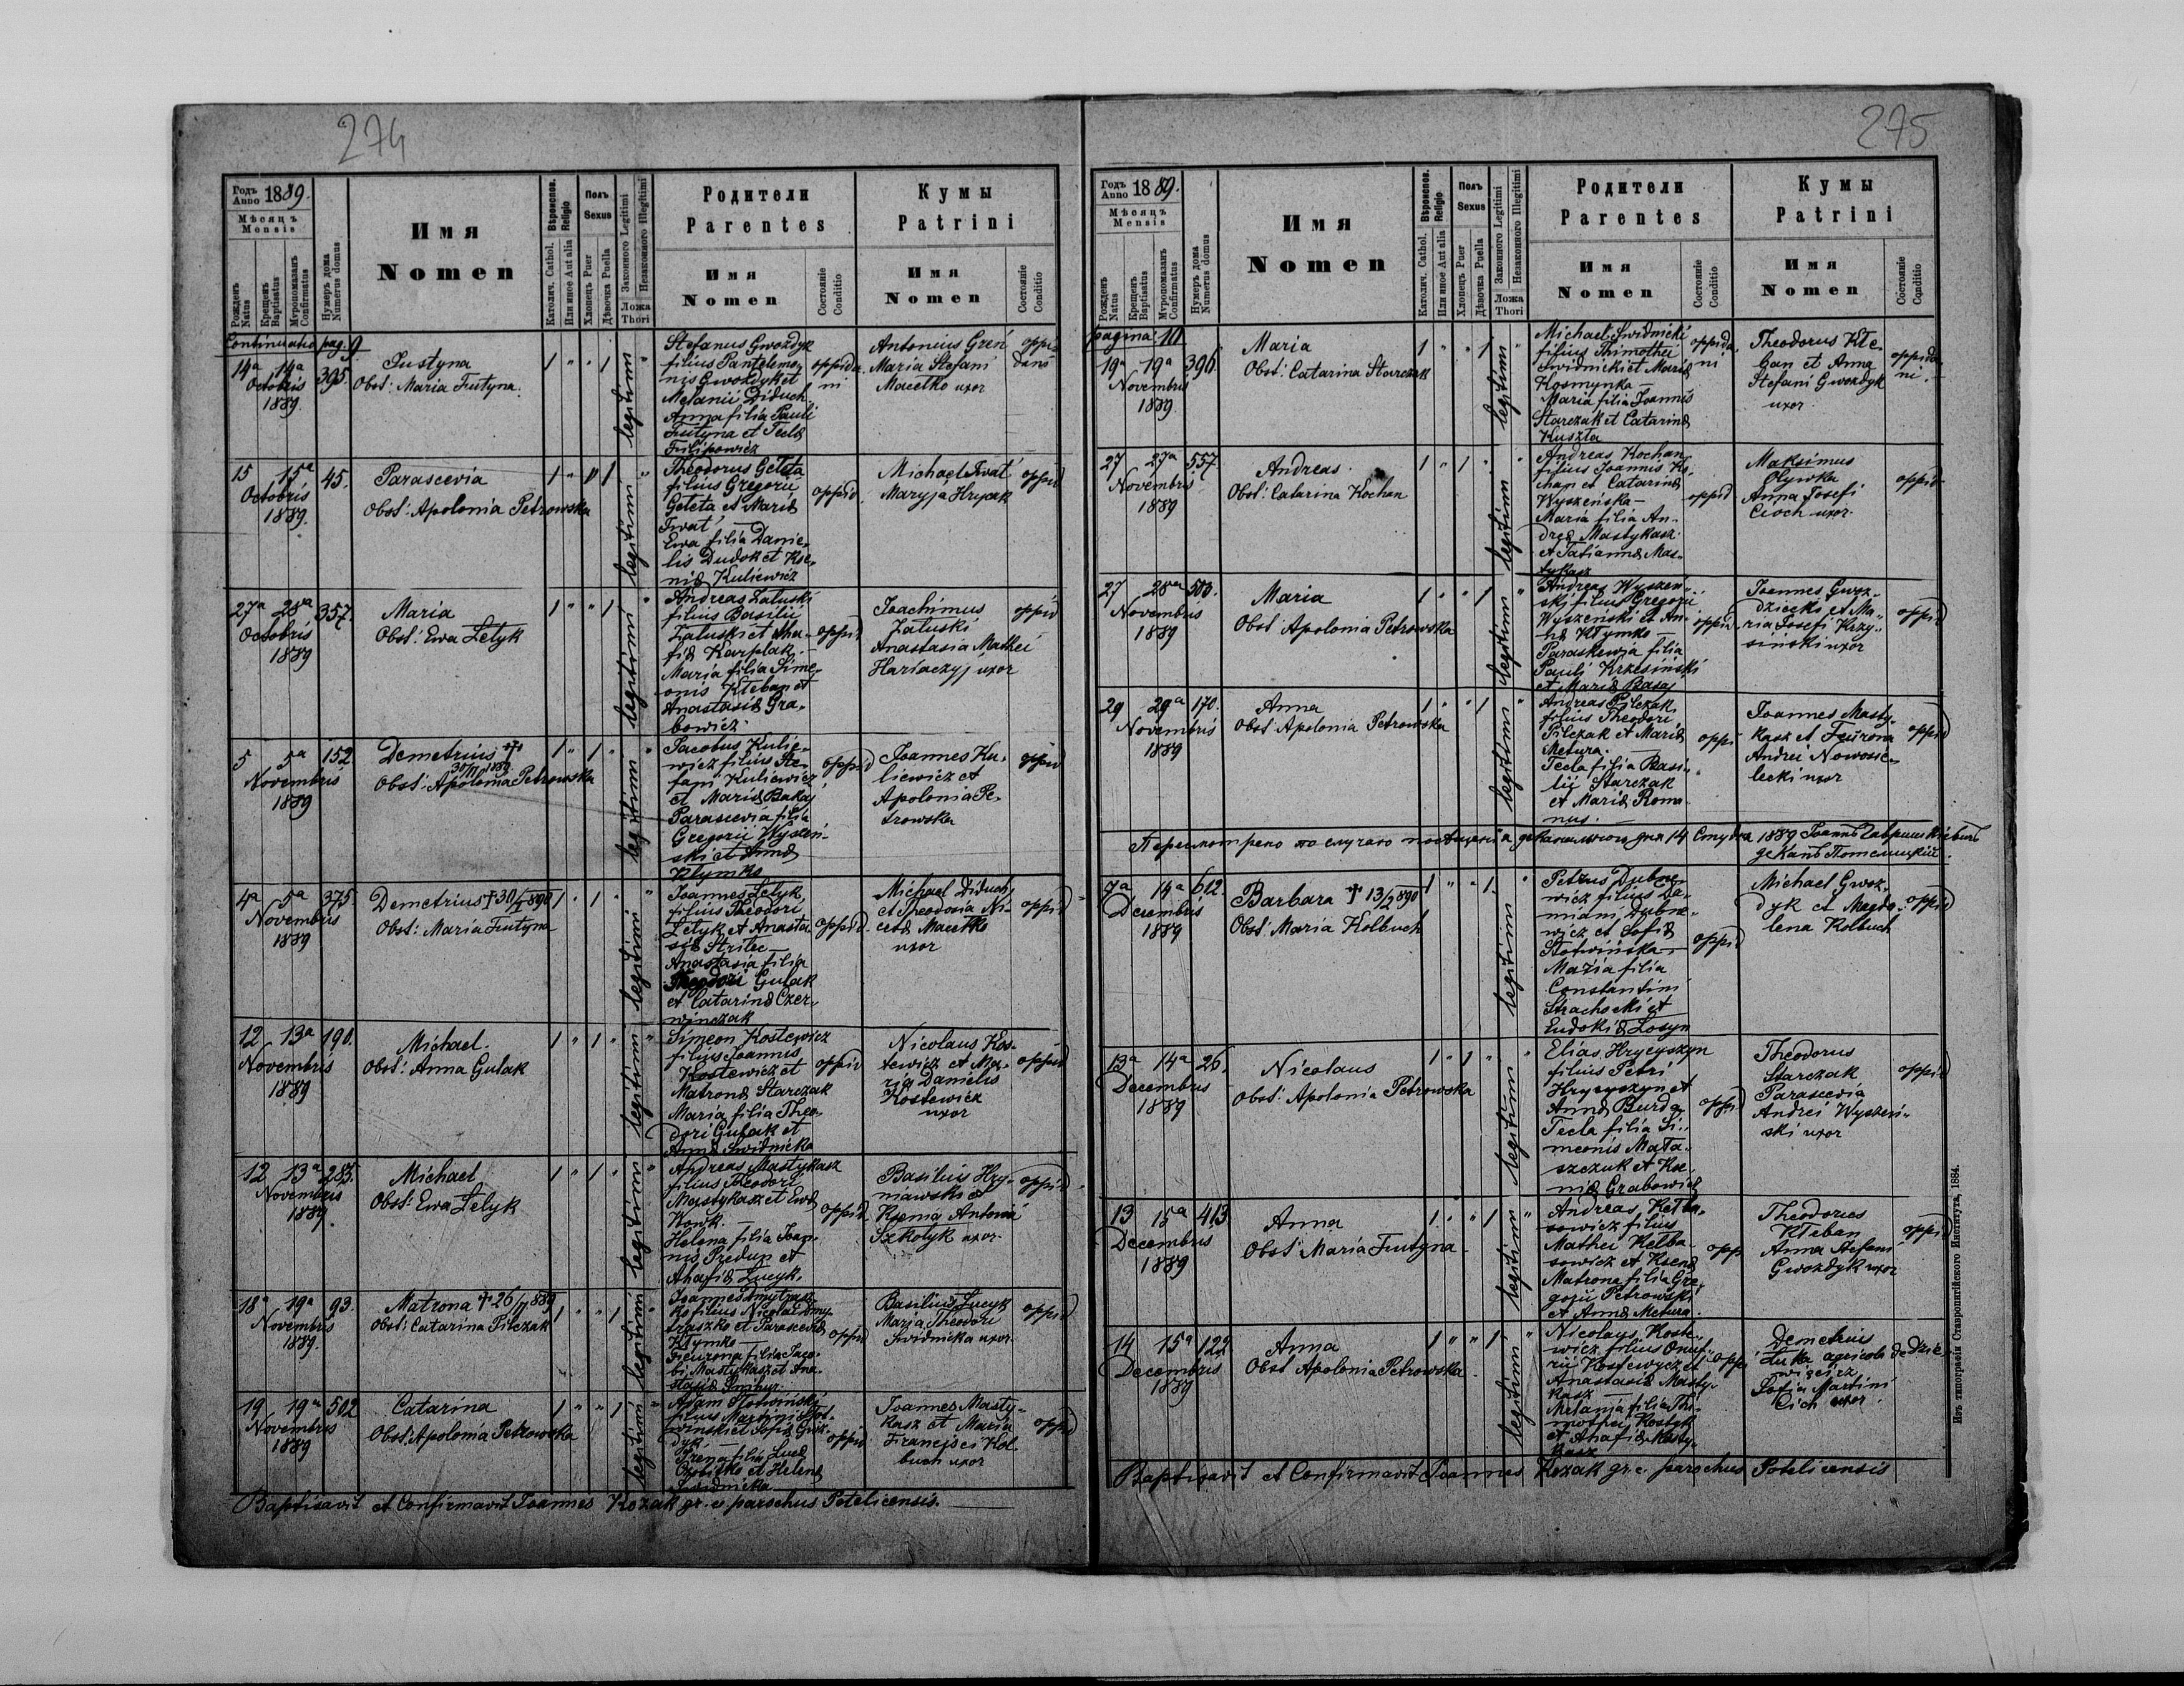 274
Годъ Anno 1889.
Мѣсяцъ Mensis
Рожденъ Natus
Крещенъ Baptisatus
Мvропомазанъ Confirmatus
Нумеръ дома Numerus domus
Имя
Nomen
Вѣроиспов. Religio
Католич. Cathol.
Или иное Aut alia
Полъ Sexus
Хлопецъ Puer
Дѣвочка Puella
Законного Legitimi
Незаконного Illegitimi
Ложа Thori
Родители
Parentes
Имя
Nomen
Состояніе Conditio
Кумы
Patrini
Имя
Nomen
Состояніе Conditio
Continuatio pag. 9
14a 14a 395.
Octobris
1889.
Justyna
Obst: Maria Futyna.
1 " " 1
legitimi
Stefanus Gwozdyk
filius Pantelemo-
nis Gwozdyk et
Melanii Diduch
Anna filia Pauli
Futyna et Teclæ
Filipowicz
oppida
ni
Antonius Greń
Maria Stefani
Macetko uxor
oppi
dani
15 15a 45.
Octobris
1889.
Parascevia
Obst: Apolonia Petrowska
1 " " 1
legitimi
Theodorus Geleta
filius Gregorii
Geleta et Mariæ
Iwat
Ewa filia Danie-
lis Dudok et Kse-
niæ Kuliewicz
oppid.
Michael Iwat
Maryja Hrycak
oppid
27a 28a 357.
Octobris
1889
Maria
Obst: Ewa Lelyk
1 " " 1 "
legitimi
Andreas Zaluski
filius Basilii
Zaluski et Aha-
fiæ Karplak.
Maria filia Sime-
onis Kłeban et
Anastasiæ Gra-
bowicz.
oppid
Joachimus
Zaluski
Anastasia Mathei
Hariaczyj uxor
oppid
5 5a 152
Novembris
1889
Demetrius ✝
30/11 1889.
Obst: Apolonia Petrowska
1 " 1 " "
legitimi
Jacobus Kulie-
wicz filius Ste-
fani Kuliewicz
et Mariæ Bakaj
Parascevia filia
Gregorii Wyszeń-
ski et Annæ
Kłymko
oppid
Joannes Ku-
liewicz et
Apolonia Pe-
trowska
oppid
4a 5a 375.
Novembris
1889
Demetrius ✝ 30/I 890
Obst: Maria Futyna
1 " 1 " "
legitimi
Joannes Lelyk,
filius Theodori
Lelyk et Anasta
siæ Strilec
Anastasia filia
Theodori Gulak
et Catarinæ Czer-
winczak
oppid.
Michael Diduch
et Theodoria Ni-
cetæ Macetko
uxor
oppid
12 13a 190.
Novembris
1889
Michael.
Obst: Anna Gulak
1 " 1 " "
legitimi
Simeon Kostewicz
filius Joannis
Kostewicz et
Matronæ Starczak
Maria filia Theo-
dori Gulak et
Annæ Swidnicka
oppid
Nicolaus Kos-
tewicz et Ma-
ria Danielis
Kostewicz
uxor
oppid
12 13a 285.
Novembris
1889.
Michael
Obst: Ewa Lelyk
1 " 1 " "
legitimi
Andreas Mastykasz
filius Theodori
Mastykasz et Ewæ
Wowk.
Helena filia Joan-
nis Predun et
Ahafiæ Lucyk.
oppid
Basilius Hry-
niawski et
Ksenia Antonii
Szkolyk uxor.
oppid
18a 19a 93.
Novembris
1889.
Matrona ✝ 26/11 889
Obst: Catarina Pilczak
1 " " 1 "
legitimi
Joannes Dmytrasz
ko filius Nicolai Dmy-
traszko et Parasceviæ
Kłymko
Feurona filia Jaco-
bi Mastykasz et Ana-
stasiæ
oppid
Basilius Lucyk
Maria Theodori
Swidnicka uxor.
oppid
19 19a 502
Novembris
1889
Catarina
Obst: Apolonia Petrowska
1 " " 1 "
legitimi
Adam Stotwiński
filius Martini Stot-
wiński et Sofiæ Gwoz-
dyk
Irena filia Lucæ
et Helenæ
Swidnicka
oppid
Joannes Masty-
kasz et Maria
Francisci Kol-
buch uxor
oppid
Baptisavit et Confirmavit Joannes Kozak gr. c. parochus Potelicensis.
275
Годъ Anno 1889.
Мѣсяцъ Mensis
Рожденъ Natus
Крещенъ Baptisatus
Мvропомазанъ Confirmatus
Нумеръ дома Numerus domus
Имя
Nomen
Вѣроиспов. Religio
Католич. Cathol.
Или иное Aut alia
Полъ Sexus
Хлопецъ Puer
Дѣвочка Puella
Законного Legitimi
Незаконного Illegitimi
Ложа Thori
Родители
Parentes
Имя
Nomen
Состояніе Conditio
Кумы
Patrini
Имя
Nomen
Состояніе Conditio
pagina 10
19a 19a 396.
Novembris
1889
Maria
Obst: Catarina Starczak
1 " " 1 "
legitimi
Michael Swidnicki
filius Thimothei
Swidnicki et Mariæ
Kosmynka
Maria filia Joannis
Starczak et Catarinæ
Kuszta
oppida
ni
Theodorus Kłe-
ban et Anna
Stefani Gwozdyk
uxor.
oppida
ni.
27 27a 557.
Novembris
1889
Andreas.
Obst: Catarina Kochan
1 " 1 " "
legitimi
Andreas Kochan
filius Joannis Ko-
chan et Catarinæ
Wyszeńska
Maria filia An-
dreæ Mastykasz
et Tatiannæ Mas-
tykasz
oppid
Maksimus
Olywka
Anna Josefi
Cioch uxor.
oppid
27 28a 500.
Novembris
1889
Maria
Obst: Apolonia Petrowska
1 " " 1 "
legitimi
Andreas Wyszeń-
ski filius Gregorii
Wyszeński et An-
næ Kłymko
Paraskewia filia
Pauli Krzesiński
et Mariæ Basaj
oppid
Joannes Gwoz-
dziecki et Ma-
ria Josefi Krzy-
siński uxor
oppid
29 29a 170.
Novembris
1889
Anna
Obst: Apolonia Petrowska
1 " " 1 "
legitimi
Andreas Pilczak
filius Theodori
Pilczak et Mariæ
Metura.
Tecla filia Basi-
lii Starczak
et Mariæ Roma-
nus.
oppi
Joannes Masty-
kasz et Feurona
Andrei Nowosie-
lecki uxor
oppid
Пересмотрено по случаю посѣщенія деканального дня 14 Студня 1889 Іоаннъ Гавришкевичъ
деканъ Потелицкій.
7a 14a 612.
Decembris
1889
Barbara ✝ 13/2 890
Obst: Maria Kolbuch
1 " " 1 "
legitimi
Petrus Dubne-
wicz filius Da-
miani Dubne-
wicz et Sofiæ
Stotwińska
Maria filia
Constantini
Strachocki et
Eudokiæ Losyn
oppid
Michael Gwoz-
dyk et Magda-
lena Kolbuch
oppid
13a 14a 26.
Decembris
1889
Nicolaus
Obst: Apolonia Petrowska
1 " 1 " "
legitimi
Elias Hrycyszyn
filius Petri
Hrycyszyn et
Annæ Burda
Tecla filia Si-
meonis Mata-
szczuk et Kse-
niæ Grabowicz
oppid
Theodorus
Starczak
Parascevia
Andrei Wyszeń-
ski uxor
oppid
13 15a 413
Decembris
1889
Anna
Obst: Maria Futyna
1 " " 1 "
legitimi
Andreas Kelba-
sowicz filius
Mathei Kelba-
sowicz et Kseniæ
Matrona filia Gre-
gorii Petrowski
et Annæ Metura.
opp
Theodorus
Kłeban
Anna Stefani
Gwozdyk uxor
oppid
14 15a 122
Decembris
1889
Anna
Obst: Apolonia Petrowska
1 " " 1 "
legitimi
Nicolaus Koste-
wicz filius Onuf-
rii Kostewycz et
Anastasiæ Masty-
kasz
Melania filia Thi-
mothei Kostyk
et Ahafiæ Masty-
kasz
oppi
Demetrius
Łuka agricola de Dzie-
więcirz
Sofia Martini
Cich uxor.
Baptisavit et Confirmavit Joannes Kozak gr. c. parochus Potelicensis
Изъ типографіи Ставропигійского Института, 1884.